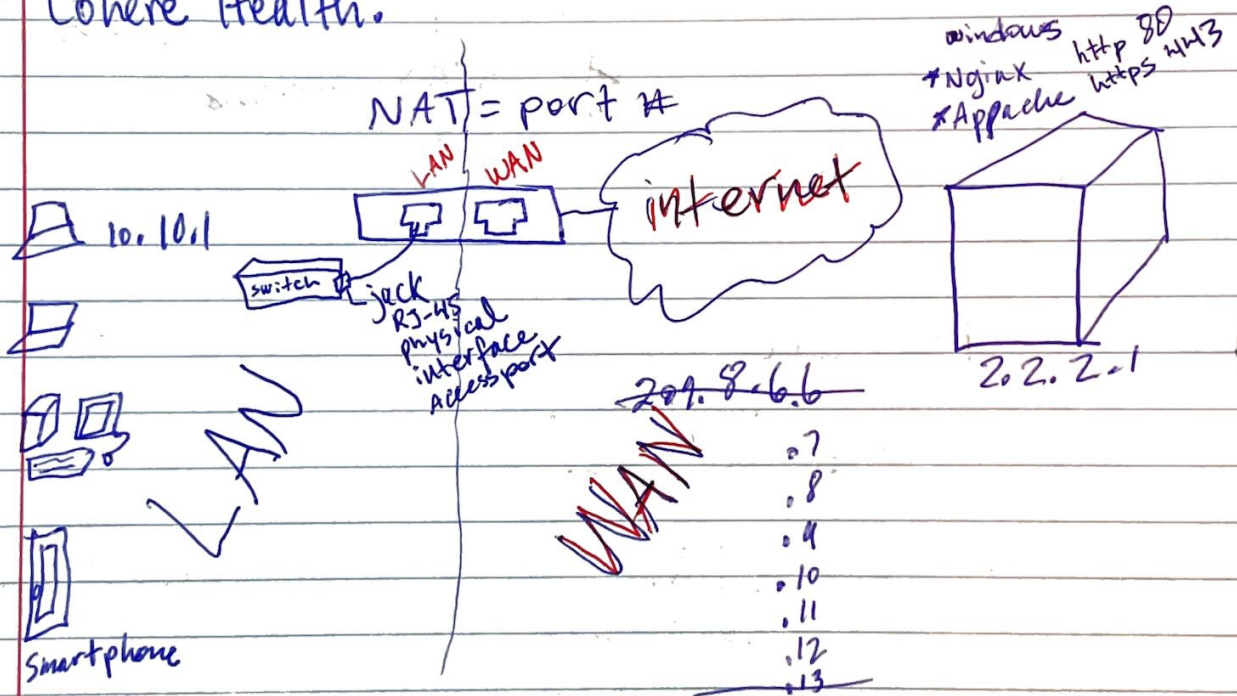 Cohere Health.
windows
*Nginx http 80
*Appache https 443
NAT = port #
LAN WAN
internet
10.10.1
switch
jack
RJ-45
physical
interface
Access port
2.2.2.1
209.8.6.6
.7
.8
.9
.10
.11
.12
.13
LAN
WAN
Smartphone